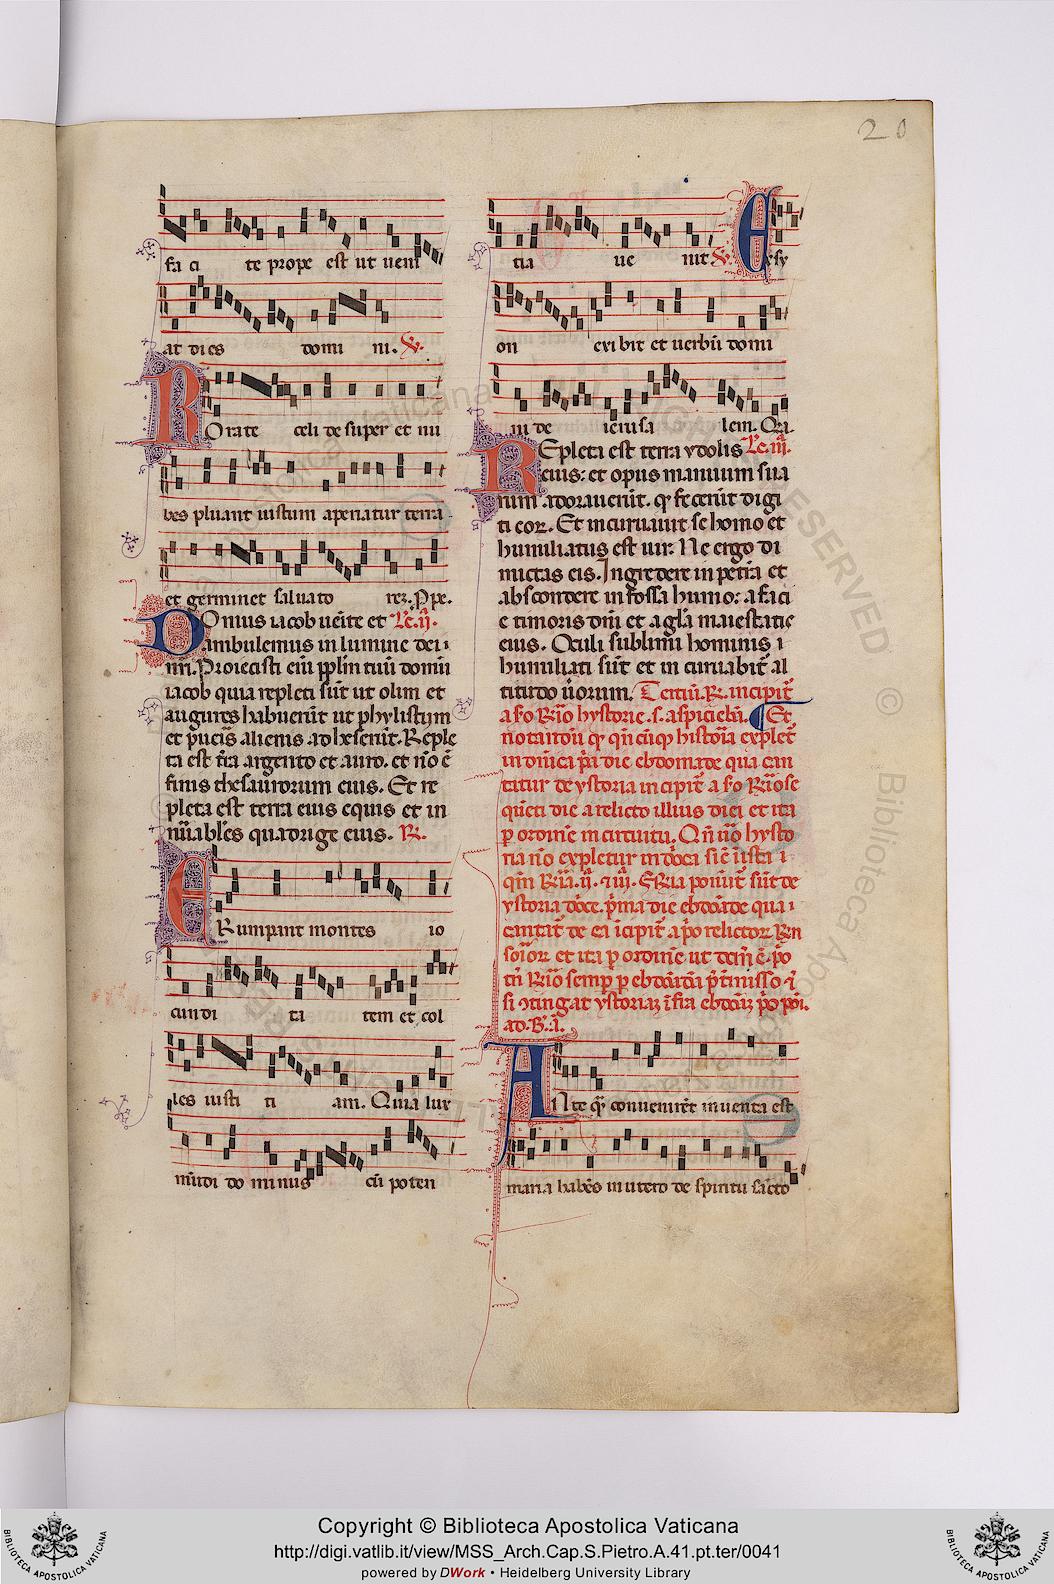 20
fa ci te prope est ut ueni
at dies domi ni. ꝟ.
Rorate celi de super et nu
bes pluant iustum aperiatur terra
et germinet saluato rez. Ppe.
Domus iacob uenite et Lc̄. ij.
ambulemus in lumine dei ı
nr̄i. Proiecisti eni͂ pplm̄ tuū domū
iacob quia repleti sūt ut olim et
augures habuerūt ut phylistijm
et pueris alienis adheserūt. Reple
ta est t̄ra argento et auro. et nō ē
finis thesaurorum eius. Et re
pleta est terra eius equis et in
nūables quadrige eius. R̷.
Erumpant montes io
cundi ta tem et col
les iusti ti am. Quia lux
mūdi do minus cū poten
tia ue nit ꝟ. Exsy
on exibit et uerbū domi
ni de ierusa lem. Qia
Repleta est terra ydolis Lc̄. iij.
eius: et opus manuum sua
rum adorauerūt. qd̄ fecerūt digi
ti eoꝝ. Et incuruauit se homo et
humiliatus est uir. Ne ergo di
mittas eis. Ingredere in petrā et
abscondere in fossa humo: a faci
e timoris dn̄i et a glā maiestatis
eius. Oculi sublimī hominis ı
humiliati sūt et in curuabit̄ al
titudo uirorum. Tertiū. R̷. incipit̄
a ſo R̷io hystorie. s. aspiciebā. ¶ Et
notandū qd̄ qn̄cūqꝫ historia explet̄
in dn̄ica p̄ia die ebdomade qua can
tatur de ystoria incipit̄ a ſo R̷io se
quēti die a relicto illius diei et ita
p ordinē in circuitu. Qn̄ uō hysto
ria nō expletur in dn̄ica sic̄ iusta ı
qm̄ R̷ia. ij. ⁊ iij. Feria ponūt̄ sūt de
ystoria dn̄ice. prima die ebdōade qua ı
cantat̄ de ea īcipit̄ a p̄o relictoꝝ R̷n
sorioꝝ et ita p ordinē ut dcm̄ ē. p̄o
tn̄ R̷io semp p ebdōadā p̄termisso ⁊
si ↄtingat ystoriaꝫ īfra ebdōaꝫ p̄o poī.
ad. B. ā.
Ante qꝫ conuenirēt inuenta est
maria habēs in utero de spiritu sācto
Copyright © Biblioteca Apostolica Vaticana
http://digi.vatlib.it/view/MSS_Arch.Cap.S.Pietro.A.41.pt.ter/0041
powered by DWork • Heidelberg University Library